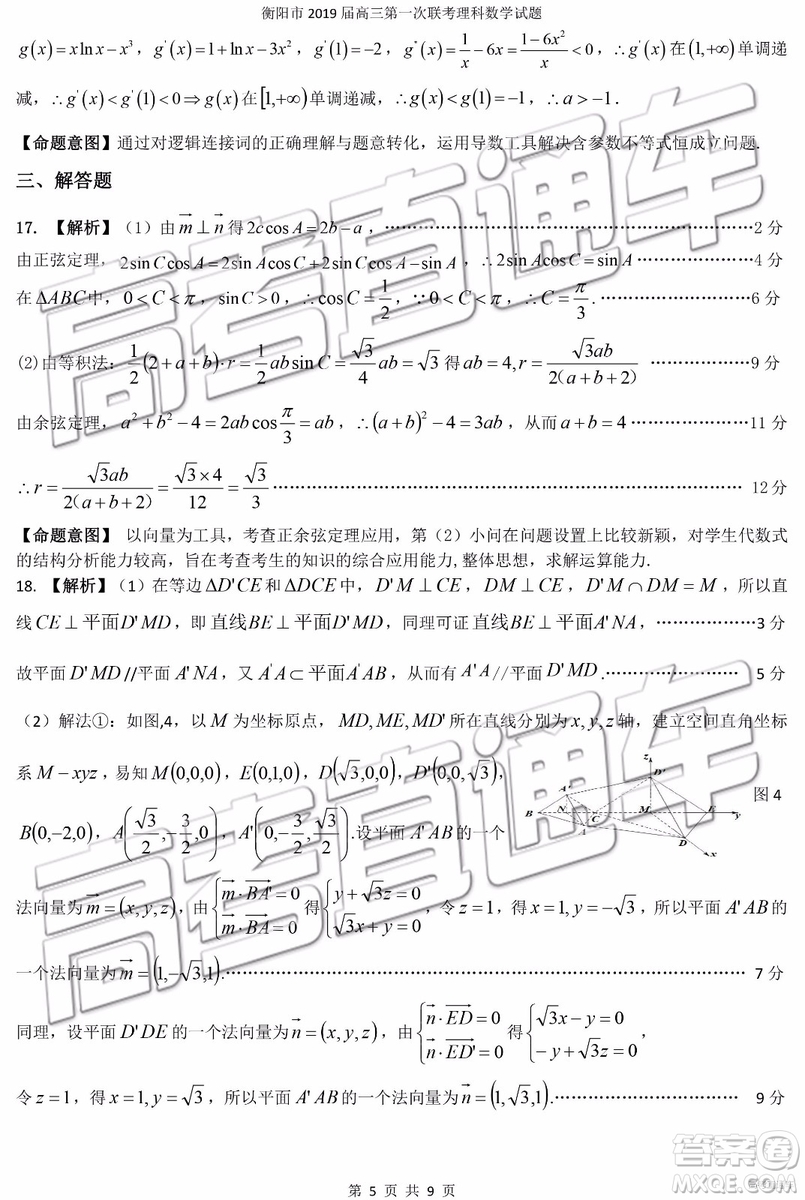 衡阳市 2019 届高三第一次联考理科数学试题
g(x)=xln x-x³，g'(x)=1+ln x-3x²，g'(1)=-2，g''(x)=1/x-6x=(1-6x²)/x<0，∴g'(x)在(1,+∞)单调递
减，∴g'(x)<g'(1)<0⇒g(x)在[1,+∞)单调递减，∴g(x)<g(1)=-1，∴a>-1．
【命题意图】通过对逻辑连接词的正确理解与题意转化，运用导数工具解决含参数不等式恒成立问题.
三、解答题
17. 【解析】（1）由 m⃗⊥n⃗ 得 2ccosA=2b-a，……………………………………………………2 分
由正弦定理，2sinCcosA=2sinAcosC+2sinCcosA-sinA，∴2sinAcosC=sinA………………4 分
在ΔABC中，0<C<π，sinC>0，∴cosC=1/2，∵0<C<π，∴C=π/3.……………………6 分
(2)由等积法：1/2(2+a+b)·r=1/2absinC=√3/4ab=√3 得ab=4,r=√3ab/2(a+b+2) ………………9 分
由余弦定理，a²+b²-4=2abcosπ/3=ab，∴(a+b)²-4=3ab，从而a+b=4…………………11 分
∴r=√3ab/2(a+b+2)=√3×4/12=√3/3……………………………………………………………… 12 分
【命题意图】 以向量为工具，考查正余弦定理应用，第（2）小问在问题设置上比较新颖，对学生代数式
的结构分析能力较高，旨在考查考生的知识的综合应用能力,整体思想，求解运算能力.
18. 【解析】（1）在等边ΔD'CE和ΔDCE中，D'M⊥CE，DM⊥CE，D'M∩DM=M，所以直
线CE⊥平面D'MD，即直线BE⊥平面D'MD，同理可证直线BE⊥平面A'NA，………………3 分
故平面D'MD//平面A'NA，又A'A⊂平面A'AB，从而有A'A//平面D'MD.………………… 5 分
（2）解法①：如图,4，以M为坐标原点，MD,ME,MD'所在直线分别为x,y,z轴，建立空间直角坐标
系M-xyz，易知M(0,0,0)，E(0,1,0)，D(√3,0,0)，D'(0,0,√3)，
z
D'
A'
图 4
B N C M E y
A
D
x
B(0,-2,0)，A(√3/2,-3/2,0)，A'(0,-3/2,√3/2).设平面A'AB的一个
法向量为m⃗=(x,y,z)，由{m⃗·BA'⃗=0 m⃗·BA⃗=0 得{y+√3z=0 √3x+y=0，令z=1，得x=1,y=-√3，所以平面A'AB的
一个法向量为m⃗=(1,-√3,1).……………………………………………………………… 7 分
同理，设平面D'DE的一个法向量为n⃗=(x,y,z)，由{n⃗·ED⃗=0 n⃗·ED'⃗=0 得{√3x-y=0 -y+√3z=0，
令z=1，得x=1,y=√3，所以平面A'AB的一个法向量为n⃗=(1,√3,1).……………………………… 9 分
第 5 页 共 9 页
高考直通车
答案圈
MXQE.COM